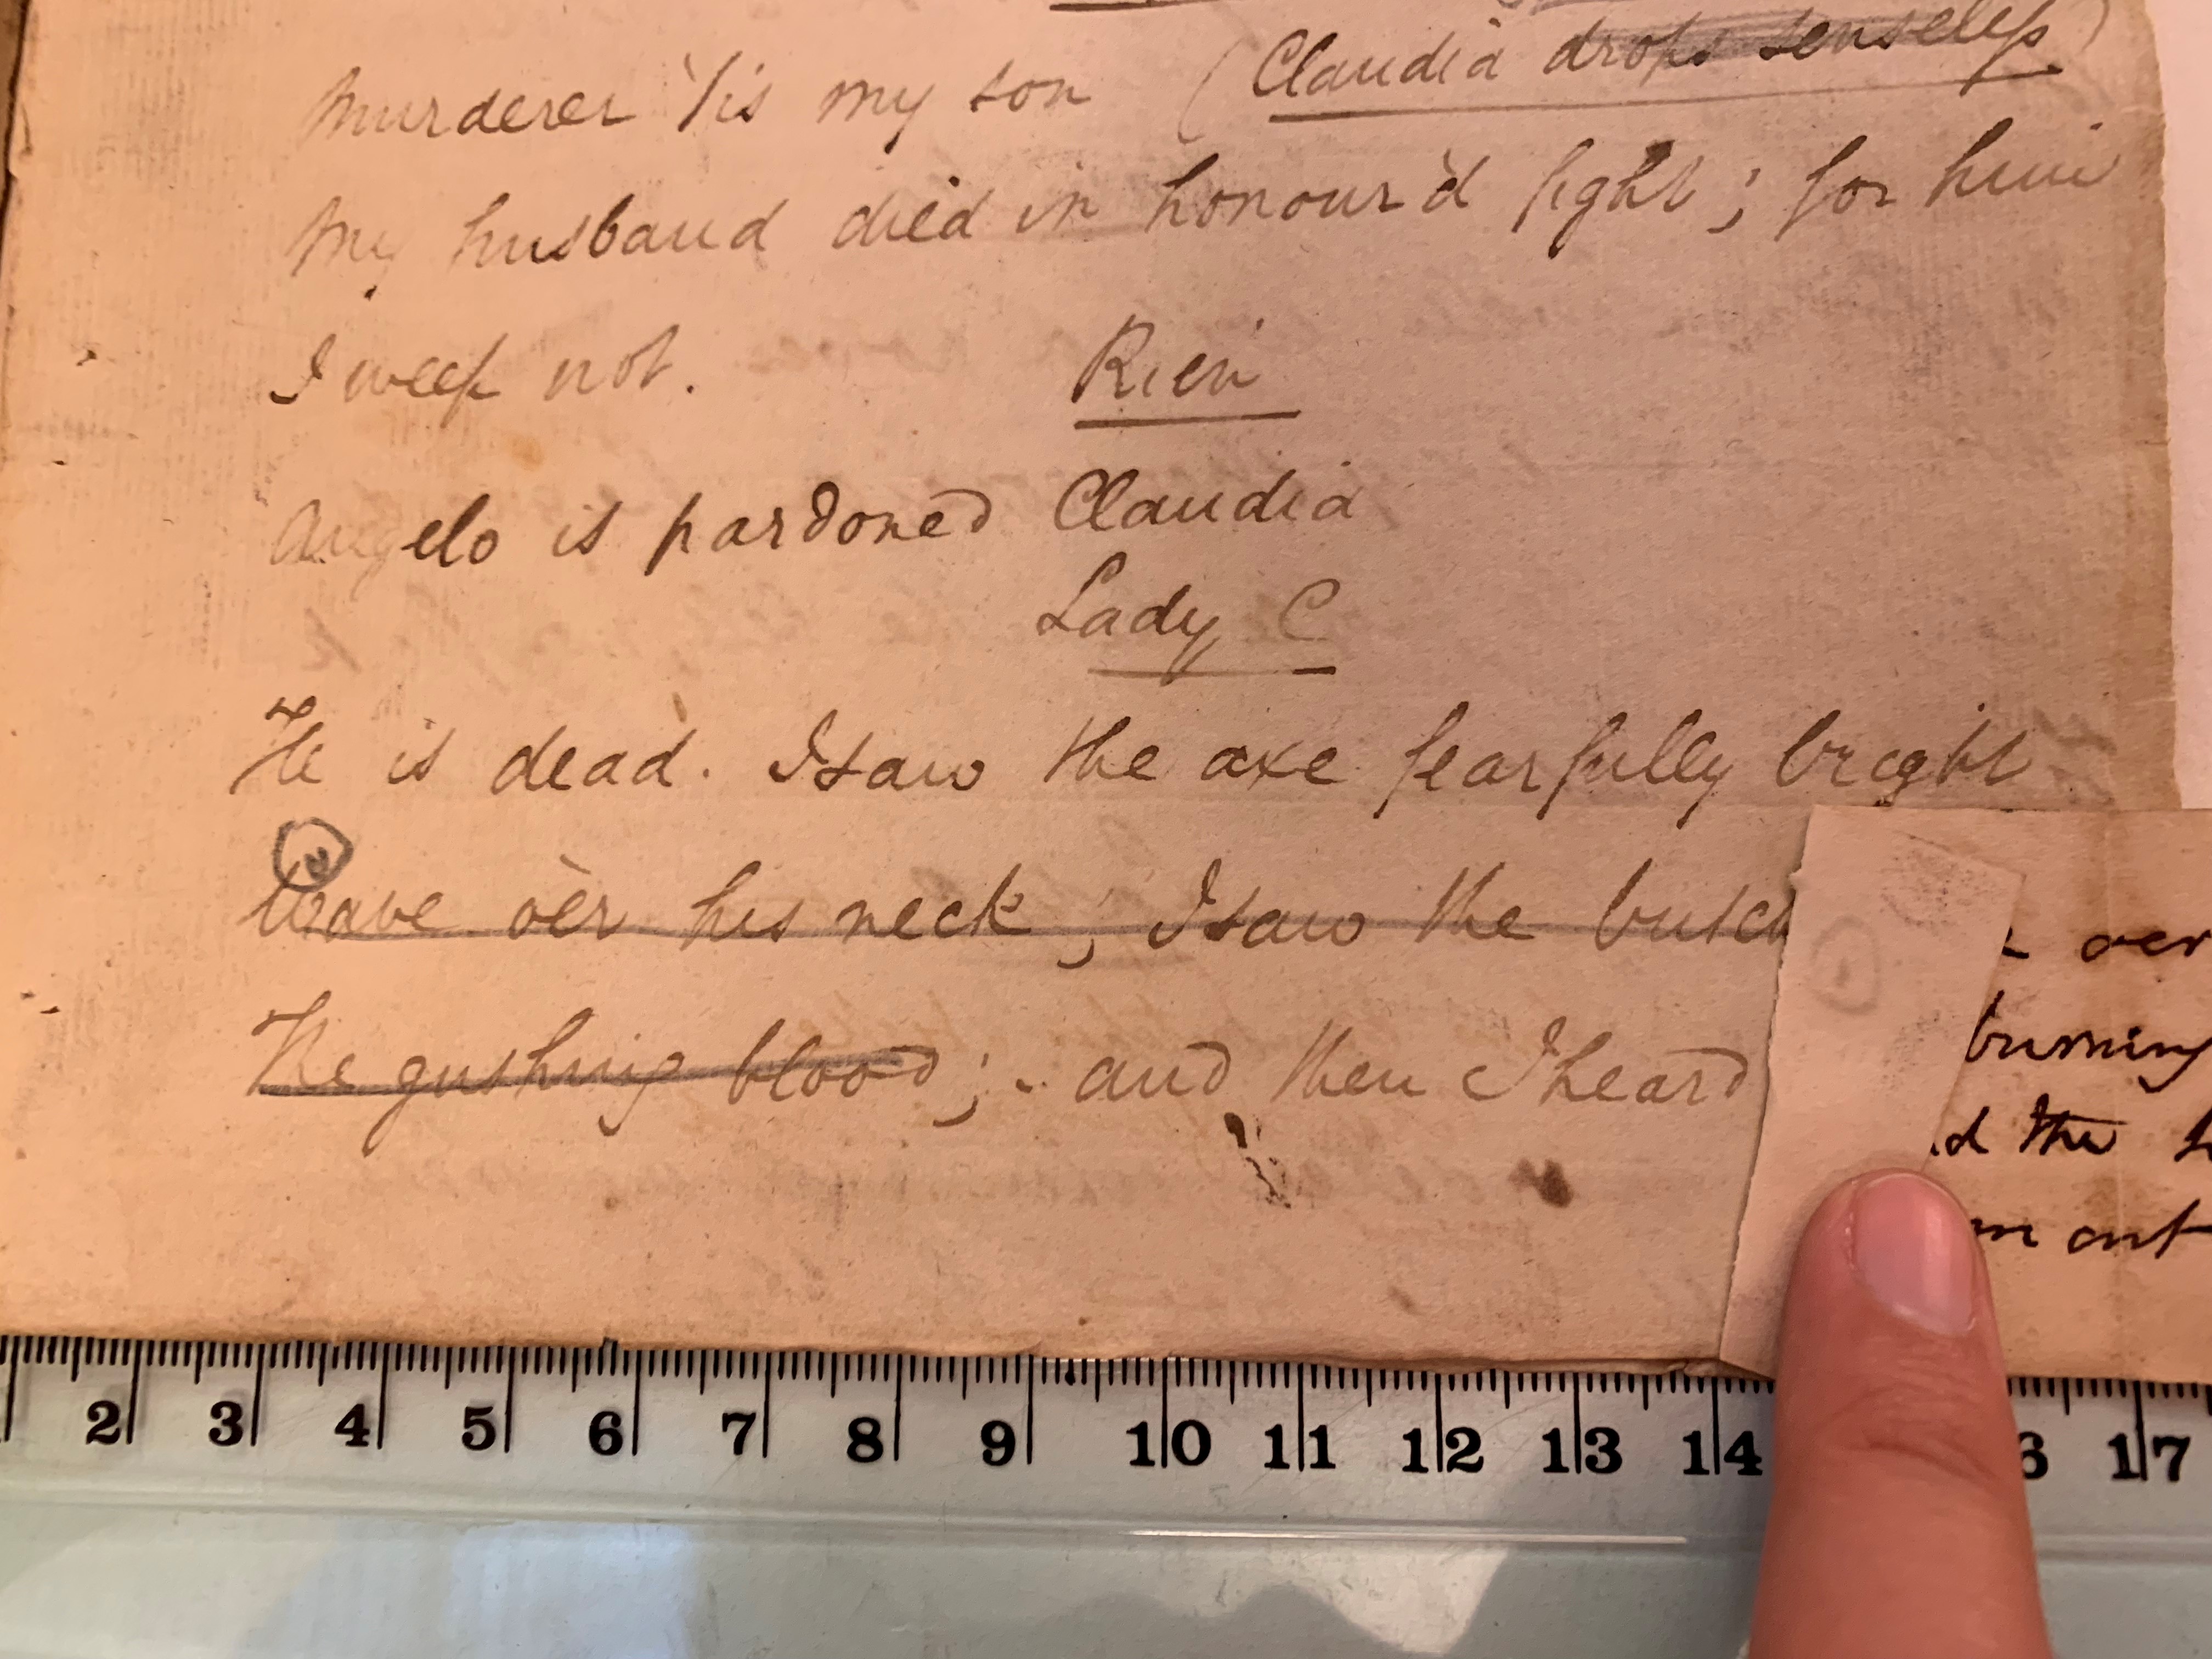 murderer 'Tis my son (Claudia drops senseless)
My husband died in honour'd fight; for him
I weep not.
Rien
Angelo is pardoned Claudia
Lady C
He is dead. I saw the axe fearfully bright
Wave o'er his neck; I saw the butch
The gushing blood; - and then I heard
oer
burning
d the
out
2 3 4 5 6 7 8 9 10 11 12 13 14 6 17